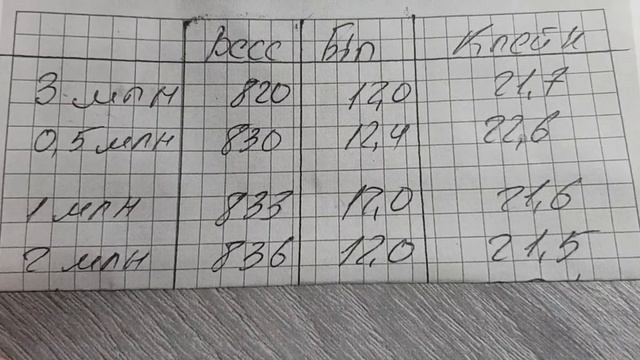 Весс Б/п Клейк
3 млн 820 12,0 21,7
0,5 млн 830 12,4 22,6
1 млн 833 12,0 21,6
2 млн 836 12,0 21,5